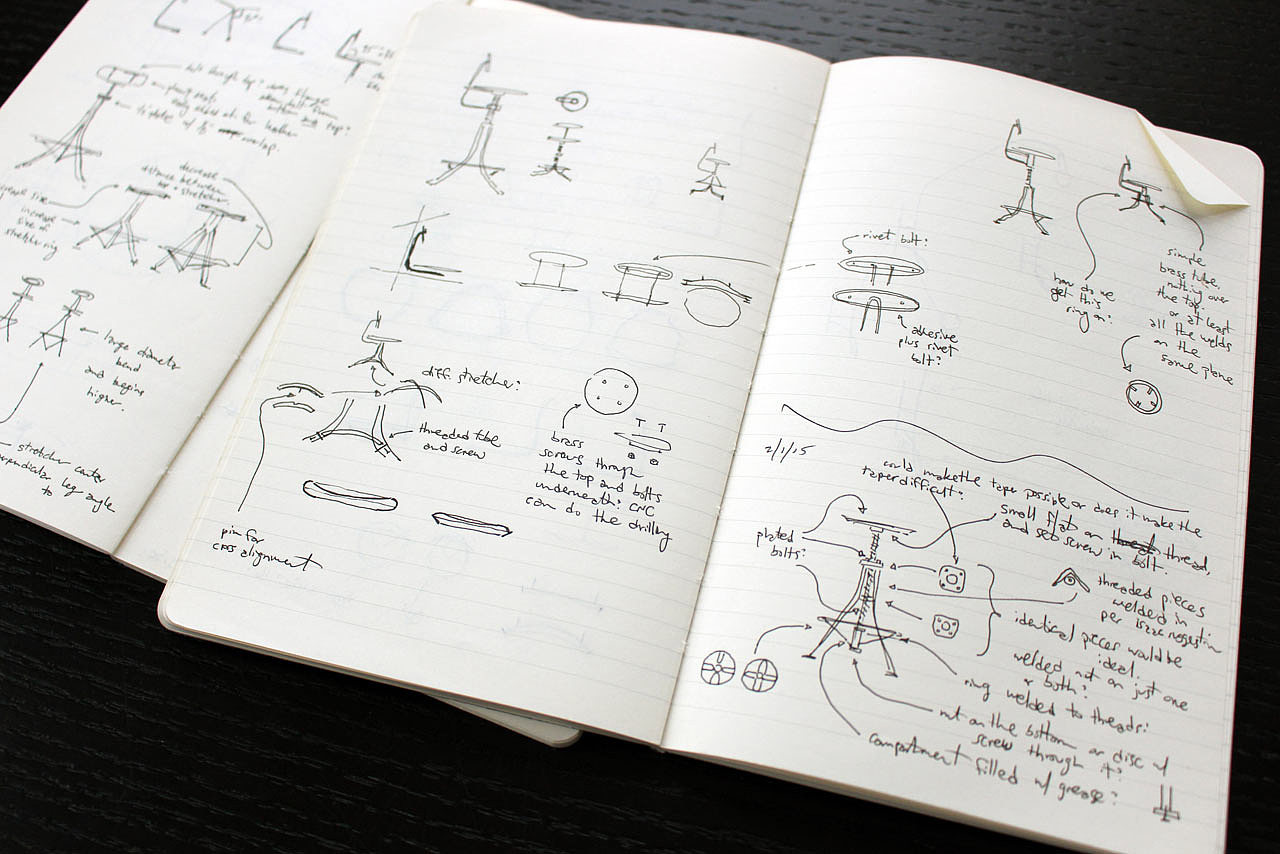 decrease
distance between
top + stretcher.
increase
size of
stretcher ring
large diameter
bend
and begins
higher.
stretcher center
perpendicular leg angle
to
diff. stretcher?
threaded tube
and screw
pin for
CPBS alignment
brass
screws through
the top and bolts
underneath? CNC
can do the drilling
rivet bolt?
adhesive
plus rivet
bolt?
how do we
get this
ring on?
simple
brass tube,
nothing over
the top.
or at least
all the welds
on the
same plane
2/1/15
could make the taper possible, or does it make the
taper difficult?
small flat on thread,
and set screw in bolt.
plated
bolts?
threaded pieces
welded in
per isaac suggestion
identical pieces would be
ideal.
welded nut on just one
or both?
ring welded to threads?
nut on the bottom or disc w/
screw through it?
compartment filled w/ grease?